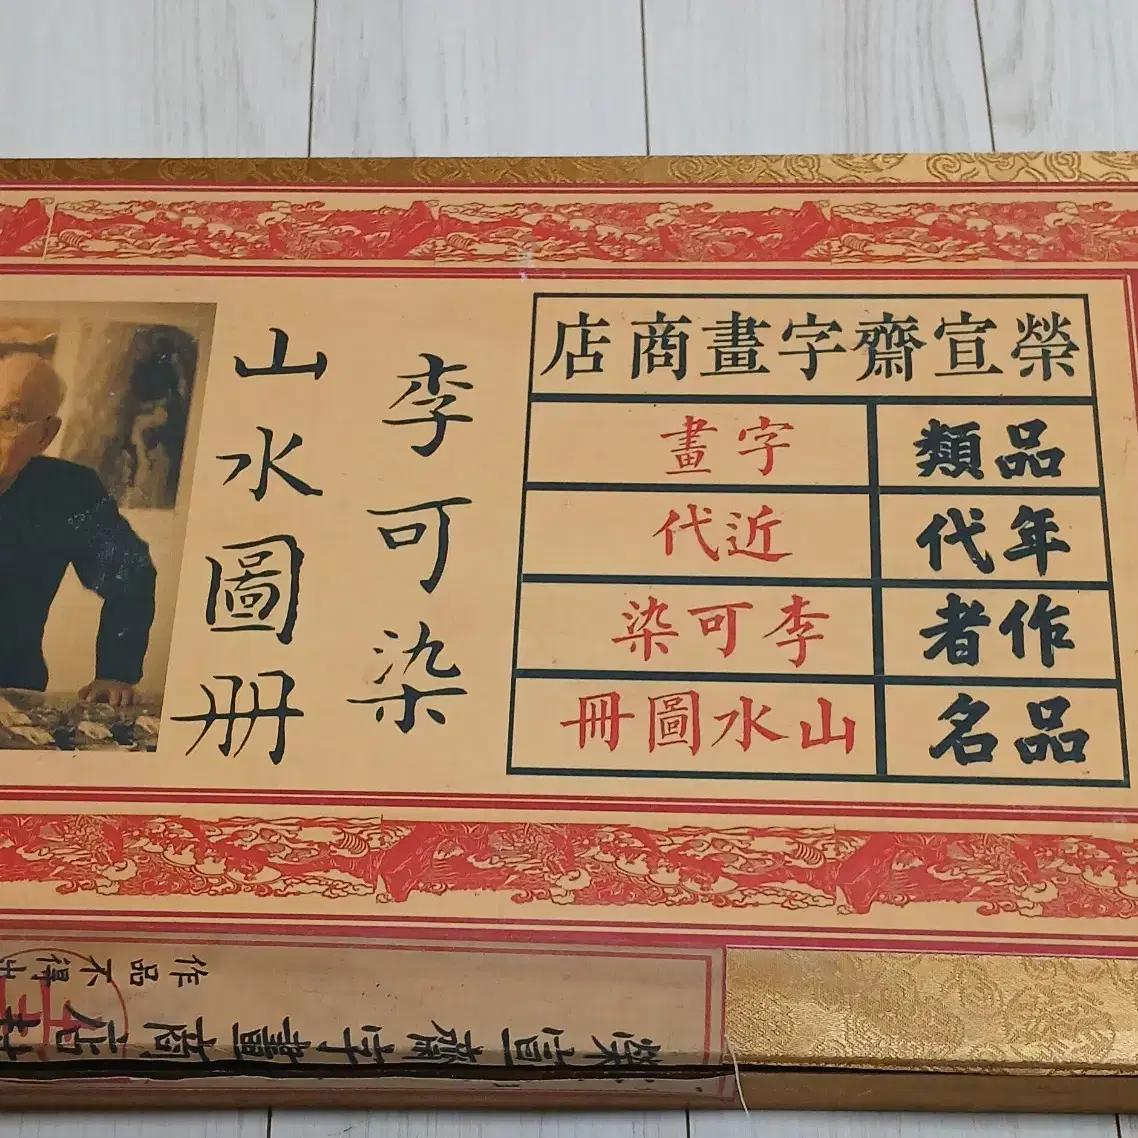 榮宣齋字畫商店
品類 字畫
年代 近代
作者 李可染
品名 山水圖冊
李可染
山水圖册
作品不得
榮宣齋字畫商店